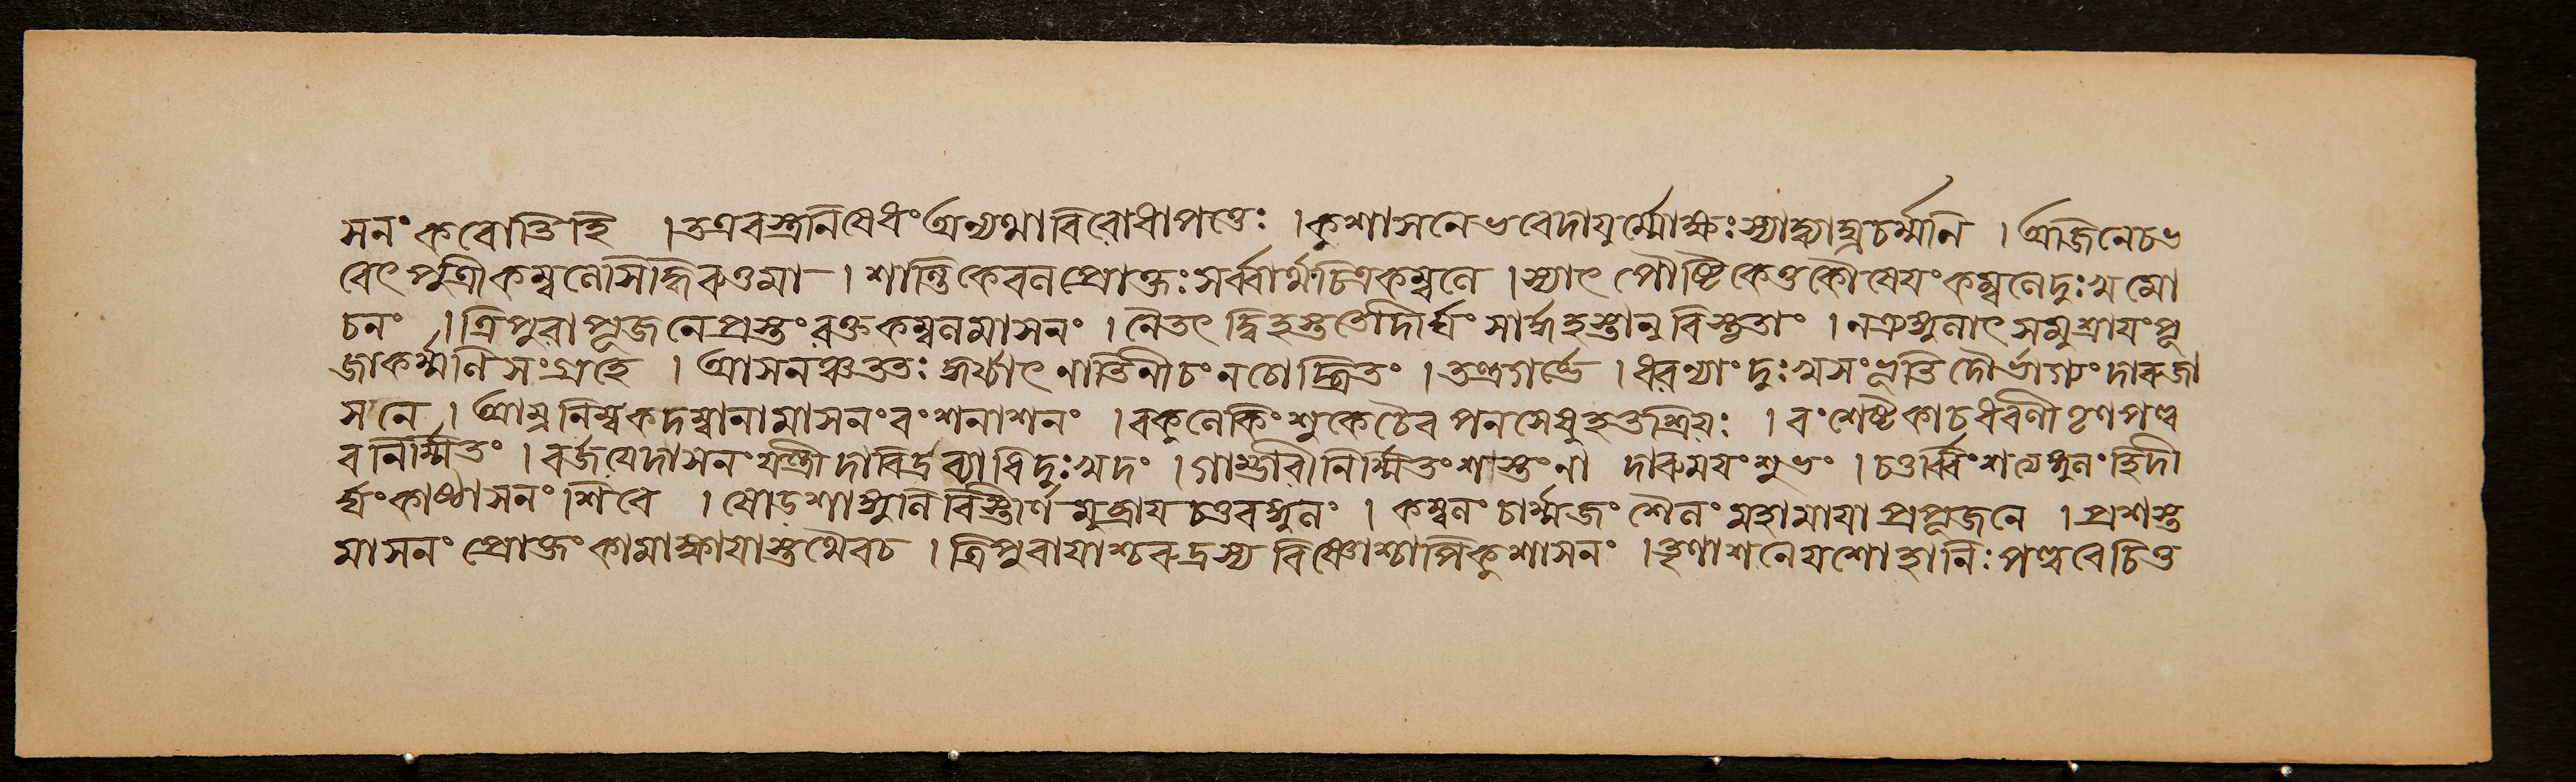 সনং কবোতিহি । তত্রবস্ত্রনিষেধং অন্যথাবিরোধাপত্তেঃ । কুশাসনেভবেদায়ুর্ম্মোক্ষঃস্যাদ্ব্যাঘ্রচর্ম্মনি । অজিনেচভ
বেৎ পুত্রীকম্বলেসিদ্ধিরুত্তমা । শান্তিকেবলপ্রোক্তঃ সর্ব্বার্থচিত্রকম্বলে । স্যাৎ পৌষ্টিকেতুকৌষেয়ং কম্বলেদুঃখমো
চনং । ত্রিপুরাপূজনেপ্রস্তং রক্তকম্বলমাসনং । নৈতৎ দ্বিহস্ততোদীর্ঘং সার্দ্ধহস্তানুবিস্তৃতাং । নত্র্যঙ্গুলাৎ সমুশ্রায়ংপূ
জাকর্ম্মণিসংগ্রহে । আসনঞ্চততঃ কুর্য্যাৎ নাতিনীচং নচোচ্ছ্রিতং । ধরণ্যাং দুঃখসংভূতি দৌর্ভাগ্যং দারুজা
সনে । আম্রনিম্বকদম্বানামাসনংবংশনাশনং । বকুলেকিংশুকেচৈব পনসেষুহতাশ্রিয়ঃ । বংশেষ্টকাচধরণী তৃণপল্ল
বনির্ম্মিতং । বর্জয়েদাসনং দারিদ্রব্যাধিদুঃখদং । গাম্ভারীনির্ম্মিতংশস্তংনা দারুময়ংশুভং । চতুর্ব্বিংশত্যঙ্গুলং হিদী
র্ঘংকাষ্ঠাসনং শিবে । ষোড়শাঙ্গুলিবিস্তীর্ণমুচ্ছ্রায়চতুরঙ্গুলং । কম্বলং চার্ম্মজং শৈলং মহামায়াপ্রপূজনে । প্রশস্ত
মাসনং প্রোক্তং কামাক্ষায়াস্তথৈবচ । ত্রিপুরায়াশ্চরুদ্রস্য বিষ্ণোশ্চাপিকুশাসনং । তৃণাশনেযশোহানিঃ পল্লবেচিত্ত